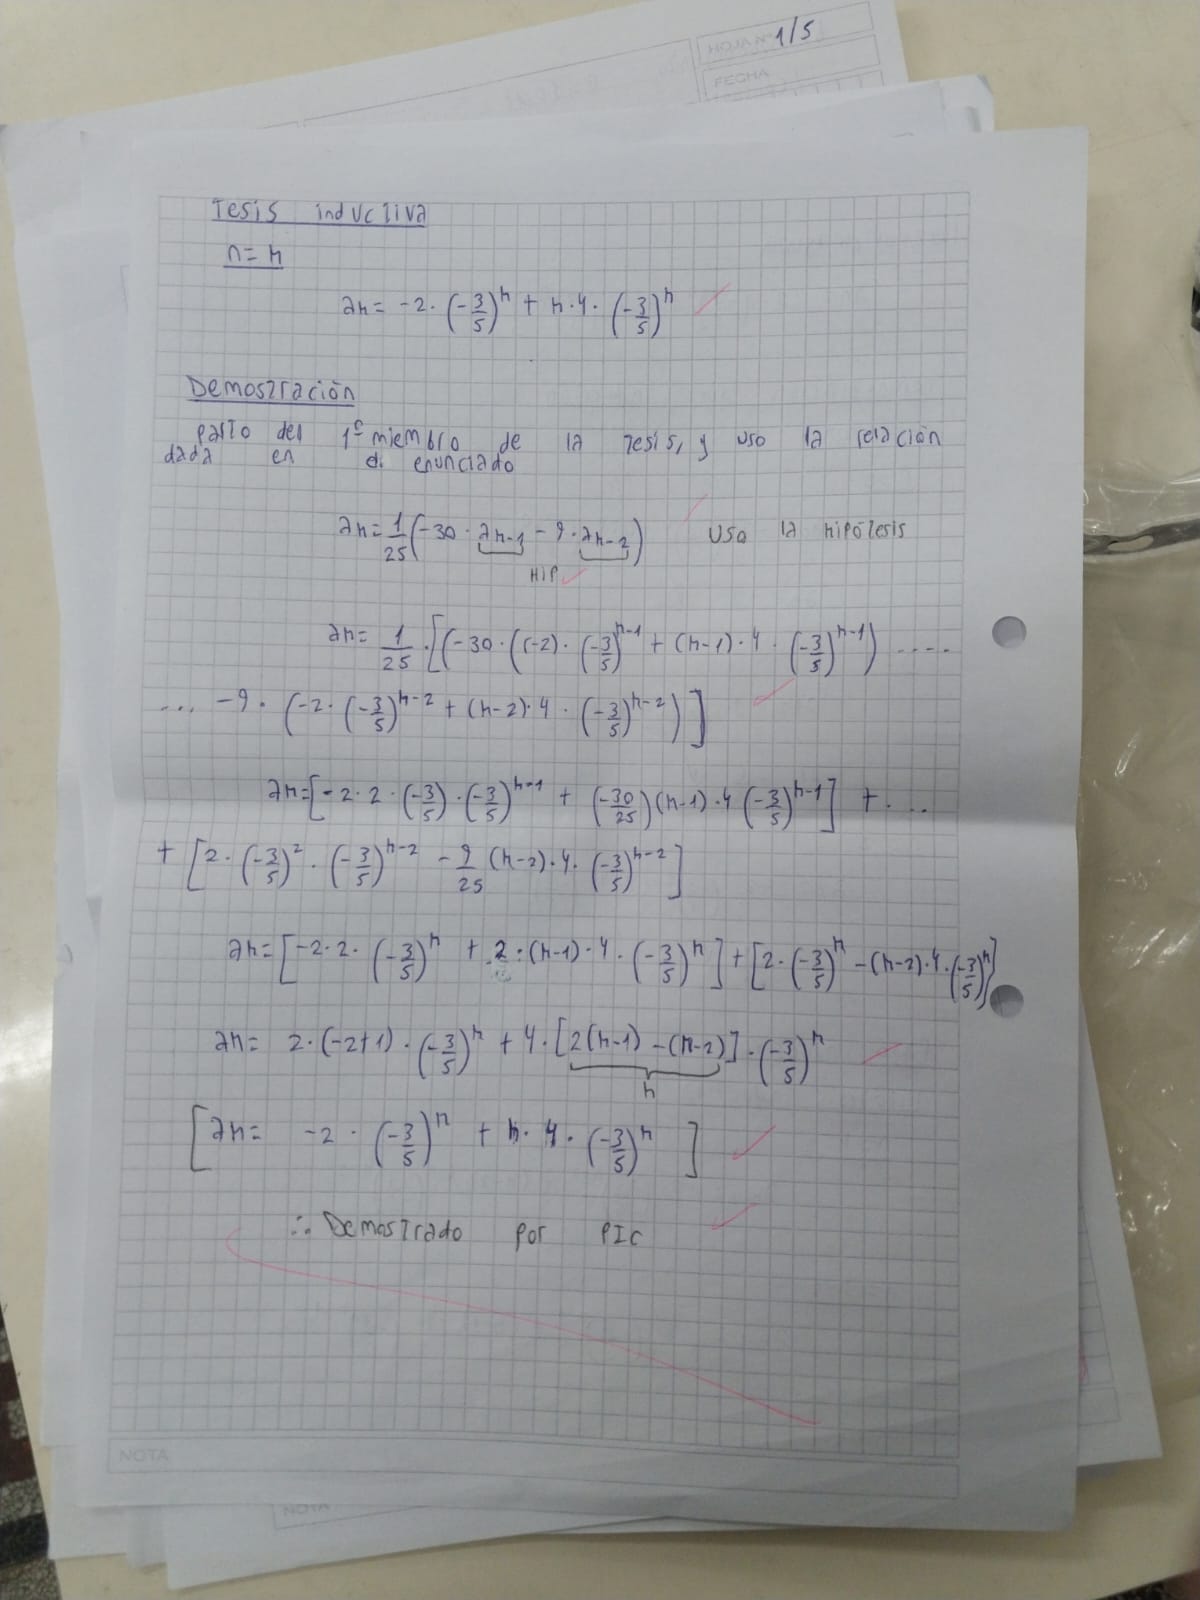 HOJA Nº 1/5
FECHA
Tesis inductiva
n = h
ah = -2 · (-3/5)^h + h · 4 · (-3/5)^h
Demostración
parto del 1º miembro de la tesis, y uso la relación
dada en el enunciado
ah = 1/25 (-30 · ah-1 - 9 · ah-2) uso la hipótesis
HIP
ah = 1/25 · [(-30 · ((-2) · (-3/5)^h-1 + (h-1) · 4 · (-3/5)^h-1) ....
... -9 · (-2 · (-3/5)^h-2 + (h-2) · 4 · (-3/5)^h-2)]
ah = [-2 · 2 · (-3/5) · (-3/5)^h-1 + (-30/25)(h-1) · 4 (-3/5)^h-1] + ...
+ [2 · (-3/5)^2 · (-3/5)^h-2 - 9/25 (h-2) · 4 · (-3/5)^h-2]
ah = [-2 · 2 · (-3/5)^h + 2 · (h-1) · 4 · (-3/5)^h] + [2 · (-3/5)^h - (h-2) · 4 · (-3/5)^h]
ah = 2 · (-2+1) · (-3/5)^h + 4 · [2(h-1) - (h-2)] · (-3/5)^h
h
[ah = -2 · (-3/5)^h + h · 4 · (-3/5)^h]
∴ Demostrado por PIC
NOTA
NOTA